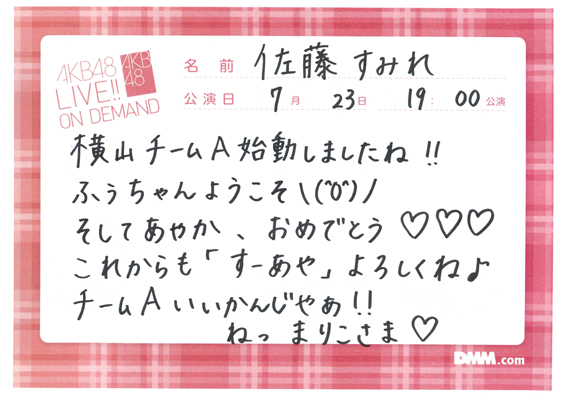 AKB48
LIVE!!
ON DEMAND
AKB
48
名前 佐藤 すみれ
公演日 7月 23日 19:00公演
横山チームA始動しましたね!!
ふぅちゃんようこそ\(^o^)/
そしてあやか、おめでとう♡♡♡
これからも「すーあや」よろしくね♪
チームAいいかんじやぁ!!
ねっ まりこさま♡
DMM.com